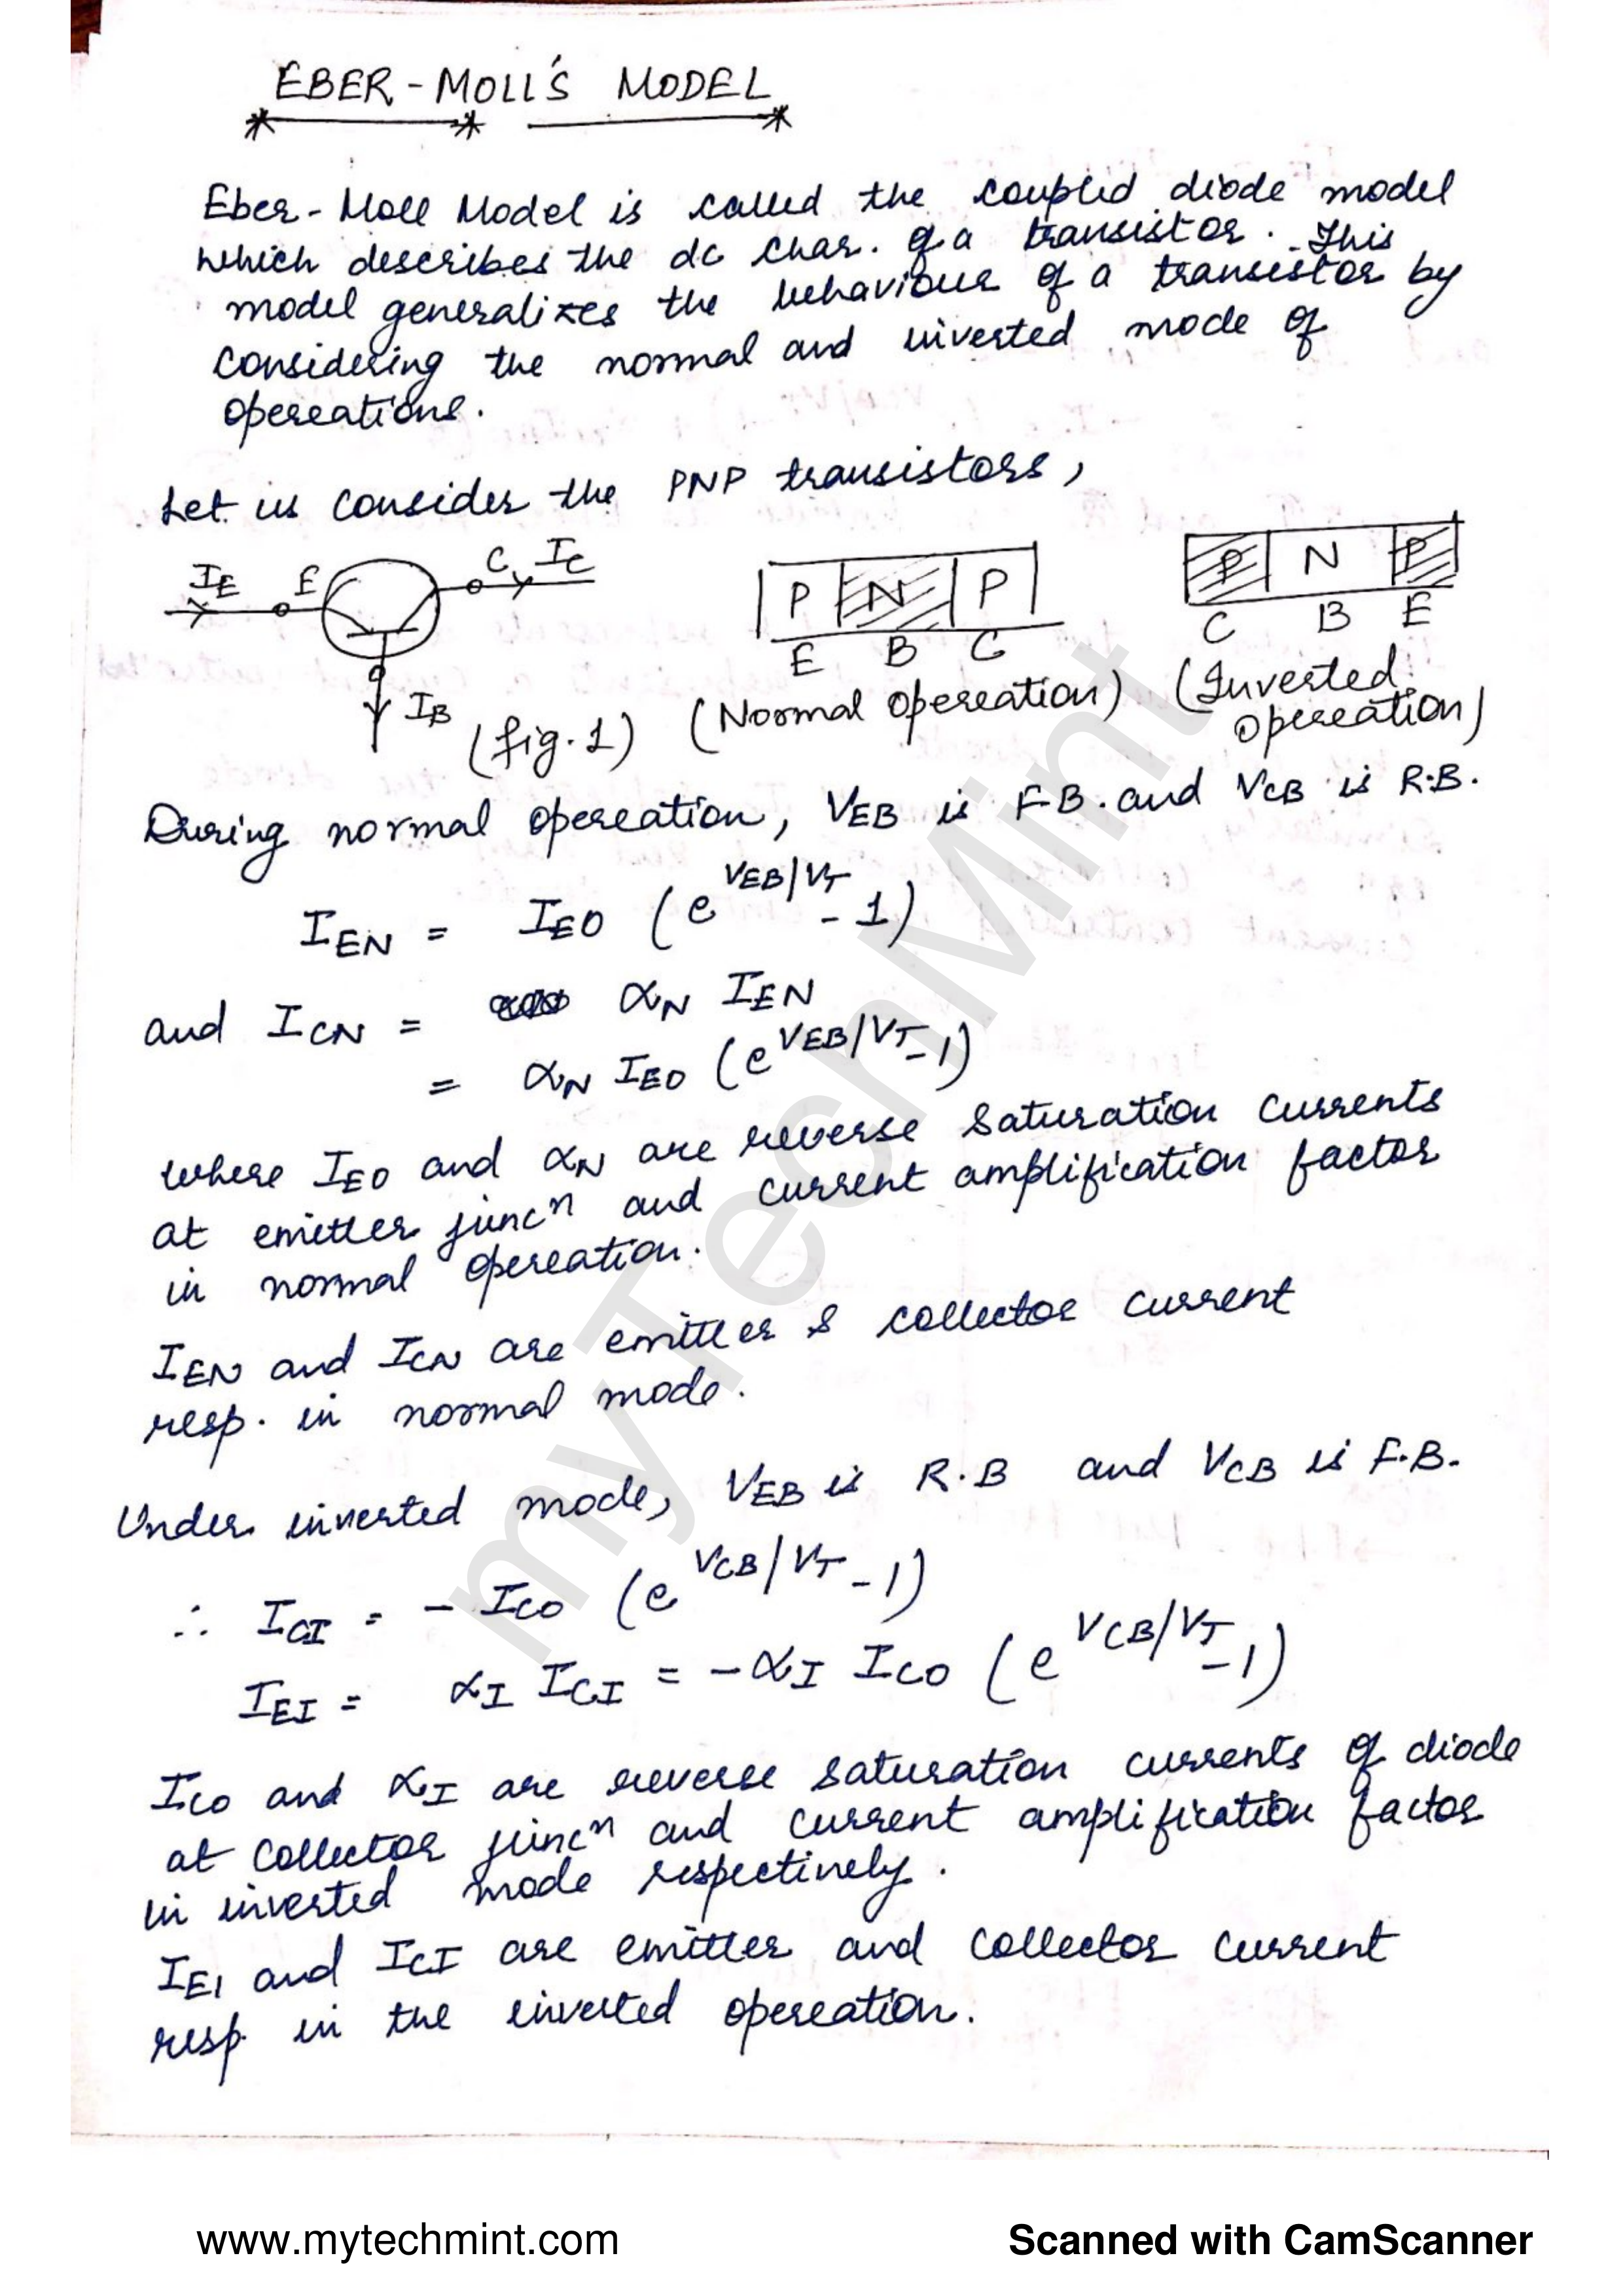 EBER-MOLL'S MODEL
Eber-Moll Model is called the coupled diode model
which describes the dc char. of a transistor. This
model generalizes the behaviour of a transistor by
considering the normal and inverted mode of
operations.
Let us consider the PNP transistors,
IE E C IC
P N P
P N P
E B C
C B E
IB (fig.1) (Normal operation) (Inverted
operation)
During normal operation, VEB is F.B. and VCB is R.B.
IEN = IEO (e^VEB/VT - 1)
and ICN = αN IEN
= αN IEO (e^VEB/VT - 1)
where IEO and αN are reverse saturation currents
at emitter junc^n and current amplification factor
in normal operation.
IEN and ICN are emitter & collector current
resp. in normal mode.
Under inverted mode, VEB is R.B and VCB is F.B.
∴ ICI = - ICO (e^VCB/VT - 1)
IEI = αI ICI = -αI ICO (e^VCB/VT - 1)
ICO and αI are reverse saturation currents of diode
at collector junc^n and current amplification factor
in inverted mode respectively.
IEI and ICI are emitter and collector current
resp. in the inverted operation.
myTechMint
www.mytechmint.com
Scanned with CamScanner